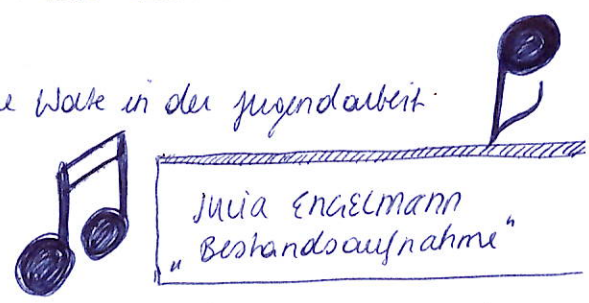 in der Jugendarbeit.
Julia Engelmann
„Bestandsaufnahme“